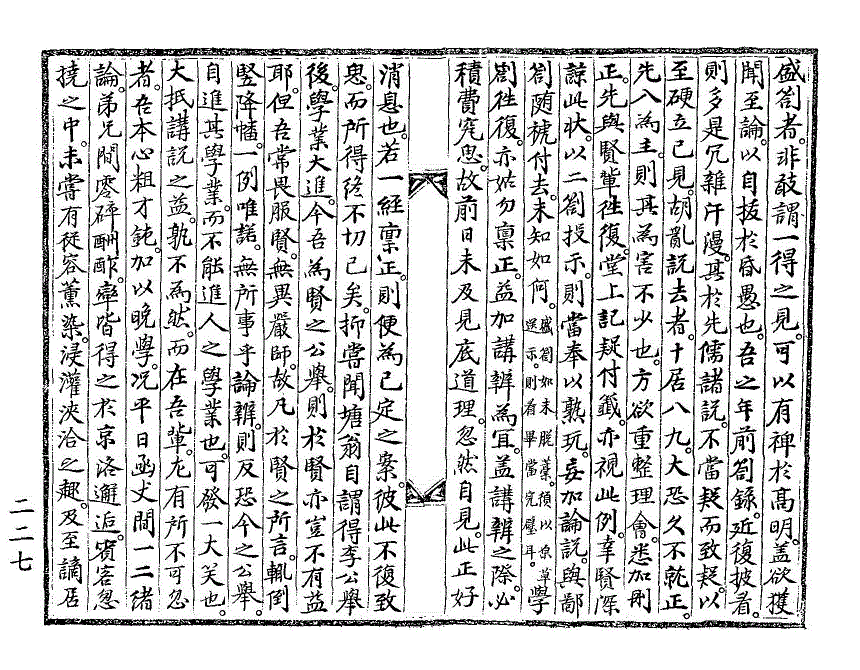 盛劄者。非敢謂一得之見。可以有裨於高明。盖欲獲
聞至論。以自拔於昏愚也。吾之年前劄錄。近復披看。
則多是冗雜汗漫。甚於先儒諸說。不當疑而致疑。以
至硬立己見。胡亂說去者。十居八九。大恐久不就正。
先入為主。則其為害不少也。方欲重整理會。悉加刪
正。先與賢軰往復。堂上記疑付籤。亦視此例。幸賢深
諒此狀。以二劄投示。則當奉以熟玩。妄加論說。與鄙
劄随梡付去。未知如何。盛劄如未脫藁。須以原草
送示。則看畢當完璧耳。學
劄徃復。亦姑勿稟正。益加講辨為宜。盖講辨之際。必
積費究思。故前日未及見底道理。忽然自見。此正好
消息也。若一經稟正。則便為已定之案。彼此不復致
思。而所得終不切己矣。抑嘗聞塘翁自謂得李公舉
後。學業大進。今吾為賢之公舉。則於賢亦豈不有益
耶。但吾常畏服賢。無異嚴師。故凡於賢之所言。輒倒
竪降幡。一例唯諾。無所事乎論辨。則反恐今之公舉。
自進其學業。而不能進人之學業也。可發一大笑也。
大抵講說之益。孰不為然。而在吾軰。尤有所不可忽
者。吾本心粗才鈍。加以晚學。况平日函丈間一二緖
論。弟兄間零碎酬酢。率皆得之於京洛邂逅。賓客忽
撓之中。未嘗有從容薰染。浸灌浹洽之趣。及至謫居
二二七